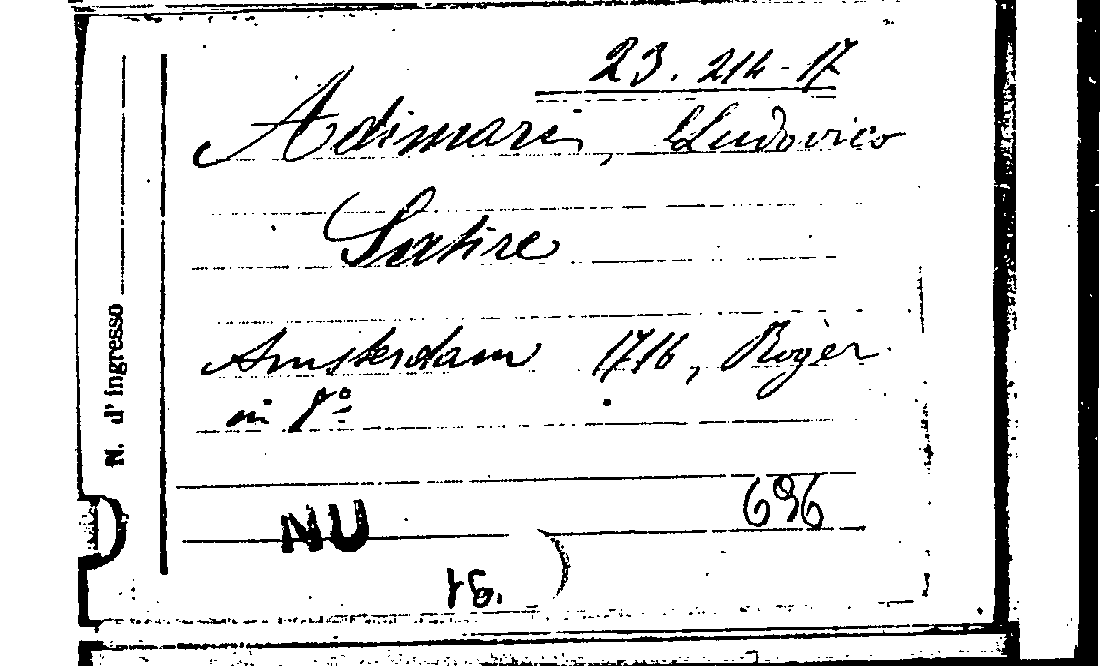 23. 214-17
Adimari, Ludovico
Satire
Amsterdam 1716, Rogèr
in 8º
696
NU
N. d'ingresso